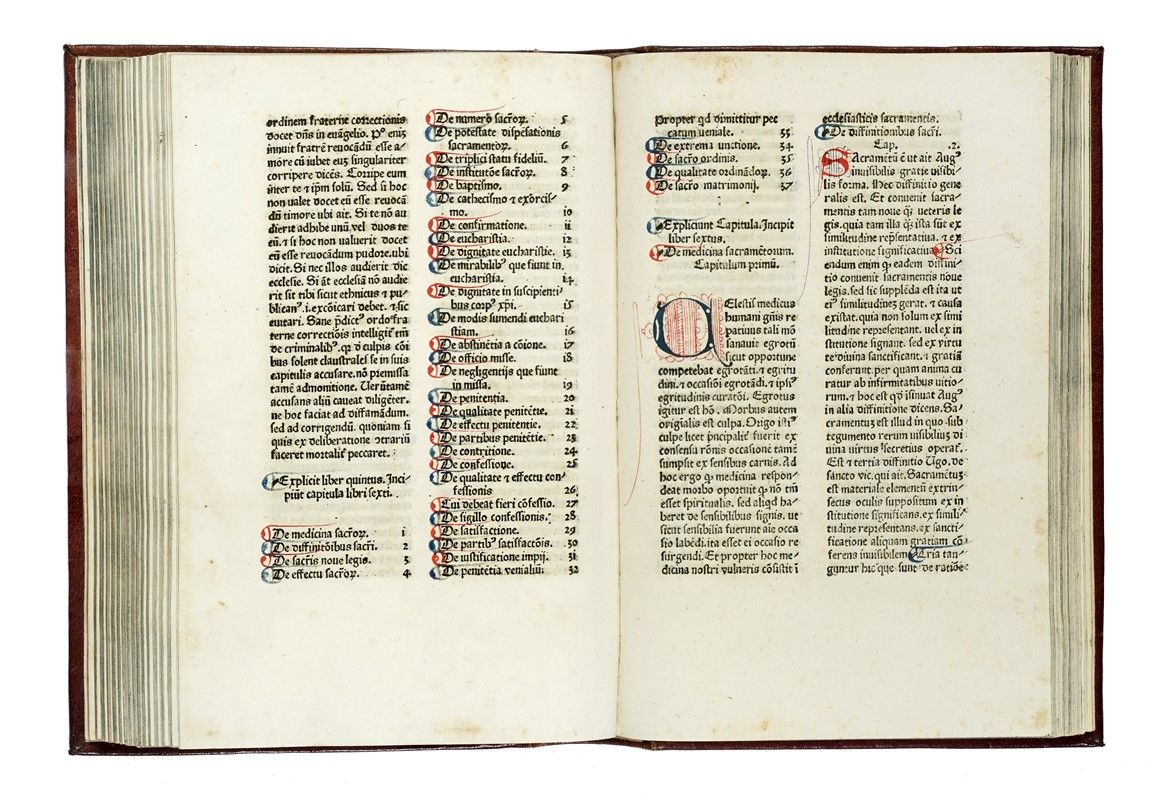 ordinem fraterne correctionis
docet dn̄s in euãgelio. Pº eniz
innuit fratrē reuocãdū esse a⸗
more cū iubet euz singulariter
corripere dicēs. Corripe eum
inter te ⁊ ip̄m solū. Sed si hoc
non ualet docet eū esse reuocã
dū timore ubi ait. Si te nō au
dierit adhibe unū vel duos te
cū. ⁊ si hoc non ualuerit docet
eū esse reuocãdum pudore. ubi
dicit. Si nec illos audierit dic
ecclesie. Si āt ecclesiã nō audie
rit sit tibi sicut ethnicus ⁊ pu⸗
blicanꝰ .i. excōicari debet. ⁊ sic
euitari. Sane p̄dictꝰ ordo fra
terne correctiōis intelligit̄ tm̄
de criminalibꝰ. qr̄ d̓ culpis cōi
bus solent claustrales se in suis
capitulis accusare. nō premissa
tamē admonitione. Uerūtamē
accusans aliū caueat diligēter.
ne hoc faciat ad diffamãdum.
sed ad corrigendū. quoniam si
quis ex deliberatione ↄtrariū
faceret mortalit̄ peccaret.
Explicit liber quintus. Inci⸗
piūt capitula libri sexti.
De medicina sacroꝝ. 1
De diffinitōibus sacr̄i. 2
De sacr̄is noue legis. 3
De effectu sacroꝝ. 4
De numero sacroꝝ. 5
De potestate dispēsationis
sacramentoꝝ. 6
De triplici statu fideliū. 7
De institutōe sacroꝝ. 8
De baptismo. 9
De cathecismo ⁊ exorcis⸗
mo. 10
De confirmatione. 11
De eucharistia. 12
De dignitate eucharistie. 13
De mirabilibꝰ que fiunt in
eucharistia. 14
De dignitate in suscipienti
bus corpꝰ xp̄i. 15
De modis sumendi euchari
stiam. 16
De abstinētia a cōione. 17
De officio misse. 18
De negligentijs que fiunt
in missa. 19
De penitentia. 20
De qualitate penitētie. 21
De effectu penitētie. 22
De partibus penitētie. 23
De contritione. 24
De confessione. 25
De qualitate ⁊ effectu con⸗
fessionis 26
Cui debeat fieri cōfessio. 27
De sigillo confessionis. 28
De satisfactione. 29
De partibꝰ satisfactōis. 30
De iustificatione impij. 31
De penitētia venialiū. 32
propter qd dimittitur pec
catum ueniale. 33
De extrema unctione. 34
De sacro ordinis. 35
De qualitate ordinãdoꝝ. 36
De sacro matrimonij. 37
Expliciunt Capitula. Incipit
liber sextus.
De medicina sacramētorum.
Capitulum primū.
CElestis medicus
humani gn̄is re
patiuus tali mō
sanauit egrotū
sicut opportune
competebat egrotãti. ⁊ egritu
dini. ⁊ occasiōi egrotãdi. ⁊ ipsiꝰ
egritudinis curatōi. Egrotus
igitur est hō. Morbus autem
origīalis est culpa. Origo istiꝰ
culpe licet p̄ncipalit̄ fuerit ex
consensu rōnis occasionē tamē
sumpsit ex sensibus carnis. Ad
hoc ergo ꝙ medicina respon⸗
deat morbo oportuit ꝙ nō tm̄
esset spiritualis. sed aliqd ha⸗
beret de sensibilibus signis. ut
sicut sensibilia fuerunt aīe occa
sio labēdi. ita esset ei occasio re
surgendi. Et propter hoc me⸗
dicina nostri vulneris cōsistit ī
ecclesiasticis sacramentis.
De diffinitionibus sacr̄i.
Cap. .2.
SAcramētū ē ut ait Augꝰ
inuisibilis gratie uisibi⸗
lis forma. Hec diffinitio gene
ralis est. Et conuenit sacra⸗
mentis tam noue ꝙ̄ ueteris le
gis. quia tam illa ꝙ̄ ista sūt ex
similitudine rep̄sentatiua. ⁊ ex
institutione significatiua. Sci
endum enim ꝙ eadem diffini⸗
tio conuenit sacramentis noue
legis. sed sic supplēda est ita ut
eiꝰ similitudinez gerat. ⁊ causa
existat. quia non solum ex simi
litudine representant. uel ex in
stitutione signant. sed ex virtu
te diuina sanctificant. ⁊ gratiã
conferunt. per quam anima cu
ratur ab infirmitatibus uitio⸗
rum. ⁊ hoc est qd īsinuat Augꝰ
in alia diffinitione dicens. Sa⸗
cramentuz est illud in quo sub
tegumento rerum uisibiliuz di
uina virtus secretius operat̄.
Est ⁊ tertia diffinitio Ugo. de
sancto vic. qui ait. Sacramētuz
est materiale elementū extrin⸗
secus oculis suppositum ex in
stitutione significans. ex simili⸗
tudine representans. ex sancti⸗
ficatione aliquam gratiam cō⸗
ferens inuisibilem. Tria tan⸗
guntur hic que sunt de ratiōe